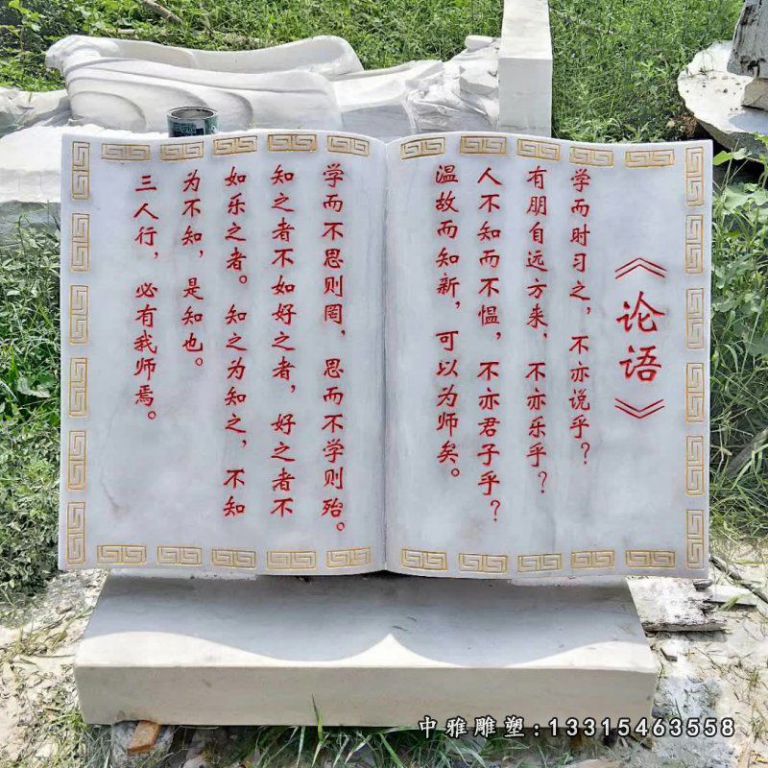 《论语》
学而时习之，不亦说乎？
有朋自远方来，不亦乐乎？
人不知而不愠，不亦君子乎？
温故而知新，可以为师矣。
学而不思则罔，思而不学则殆。
知之者不如好之者，好之者不
如乐之者。知之为知之，不知
为不知，是知也。
三人行，必有我师焉。
中雅雕塑:13315463558